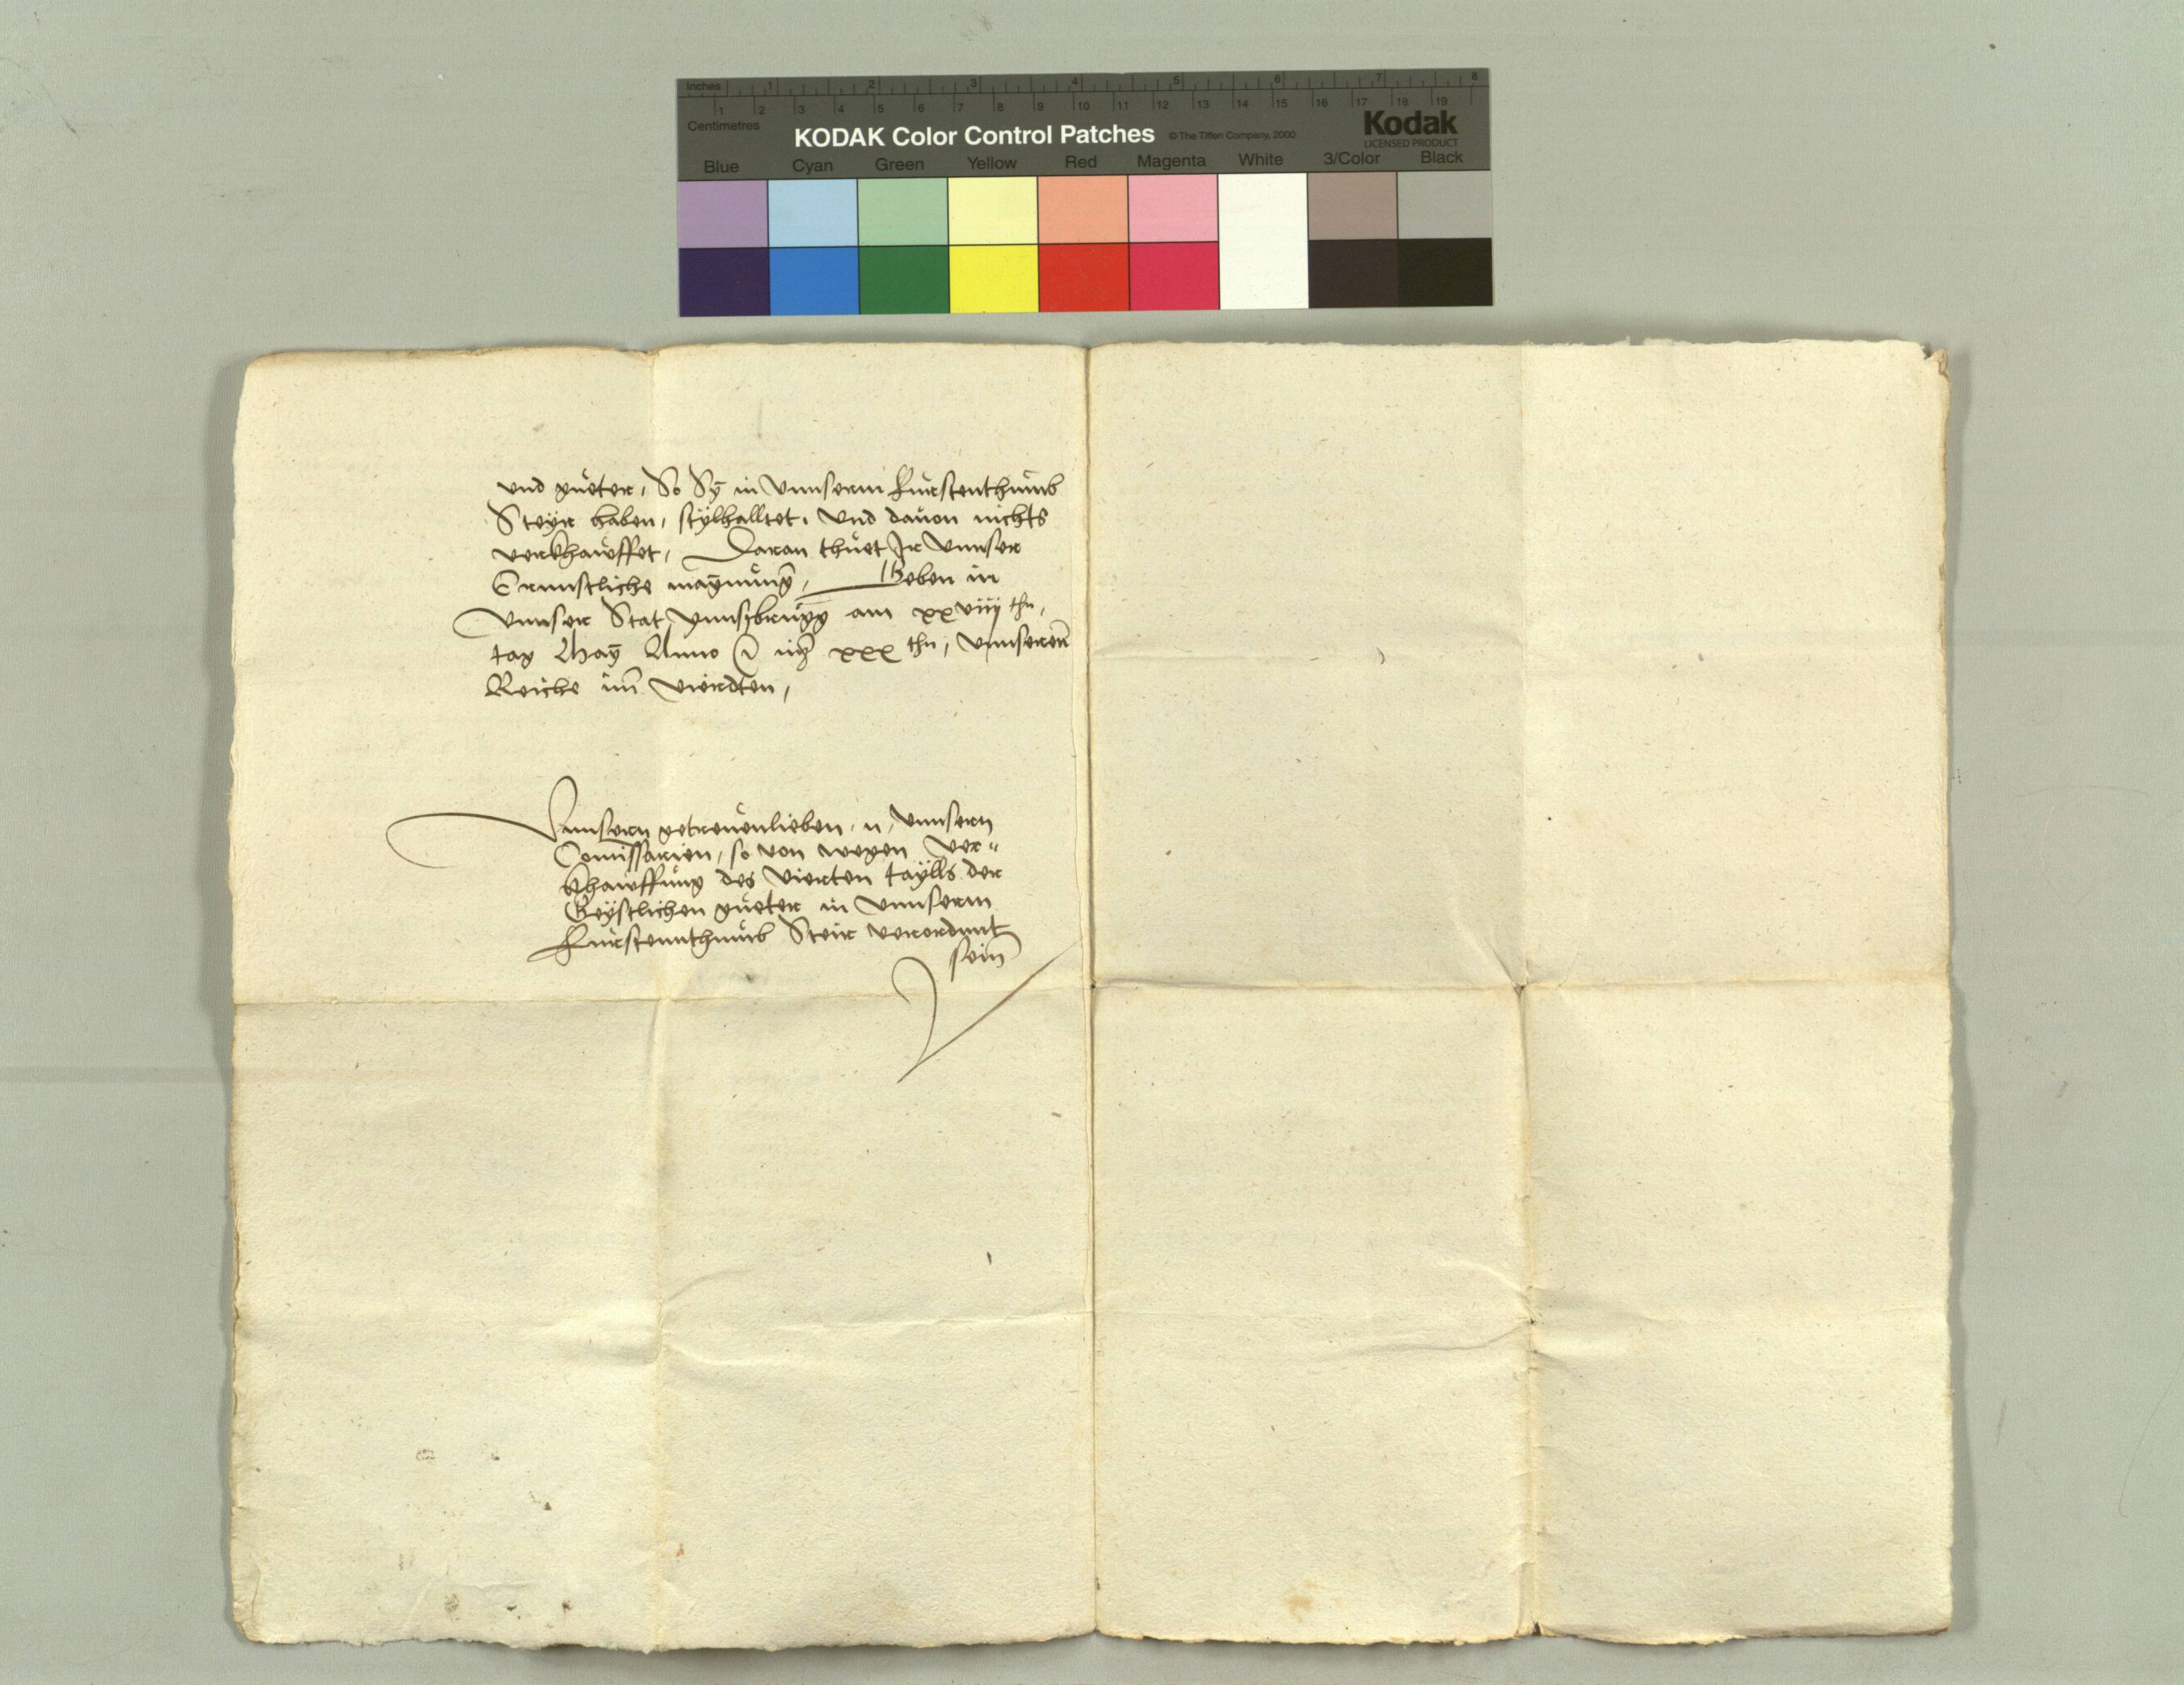 Inches 1 2 3 4 5 6 7 8
1 2 3 4 5 6 7 8 9 10 11 12 13 14 15 16 17 18 19
Centimetres
KODAK Color Control Patches © The Tiffen Company, 2000 Kodak
LICENSED PRODUCT
Blue Cyan Green Yellow Red Magenta White 3/Color Black
und gueter, So Sy in Unnserm Furstenthumb
Steyr haben, stylhalltet, Und dauon nichts
verkhauffet, Daran thuet Ir Unnser
Ernnstliche maynung, Geben in
Unnser Stat Ynnsbrugg am xxviij thn,
tag May Anno xxx thn, Unnserer
Reiche im Vierdten,
Unnsern getreuenlieben, n, Unnsern
Comissarien, so von wegen Ver„
khauffung des Vierten taylls der
Geystlichen gueter in Unnserm
Furstennthumb Steir verordnnt
sein